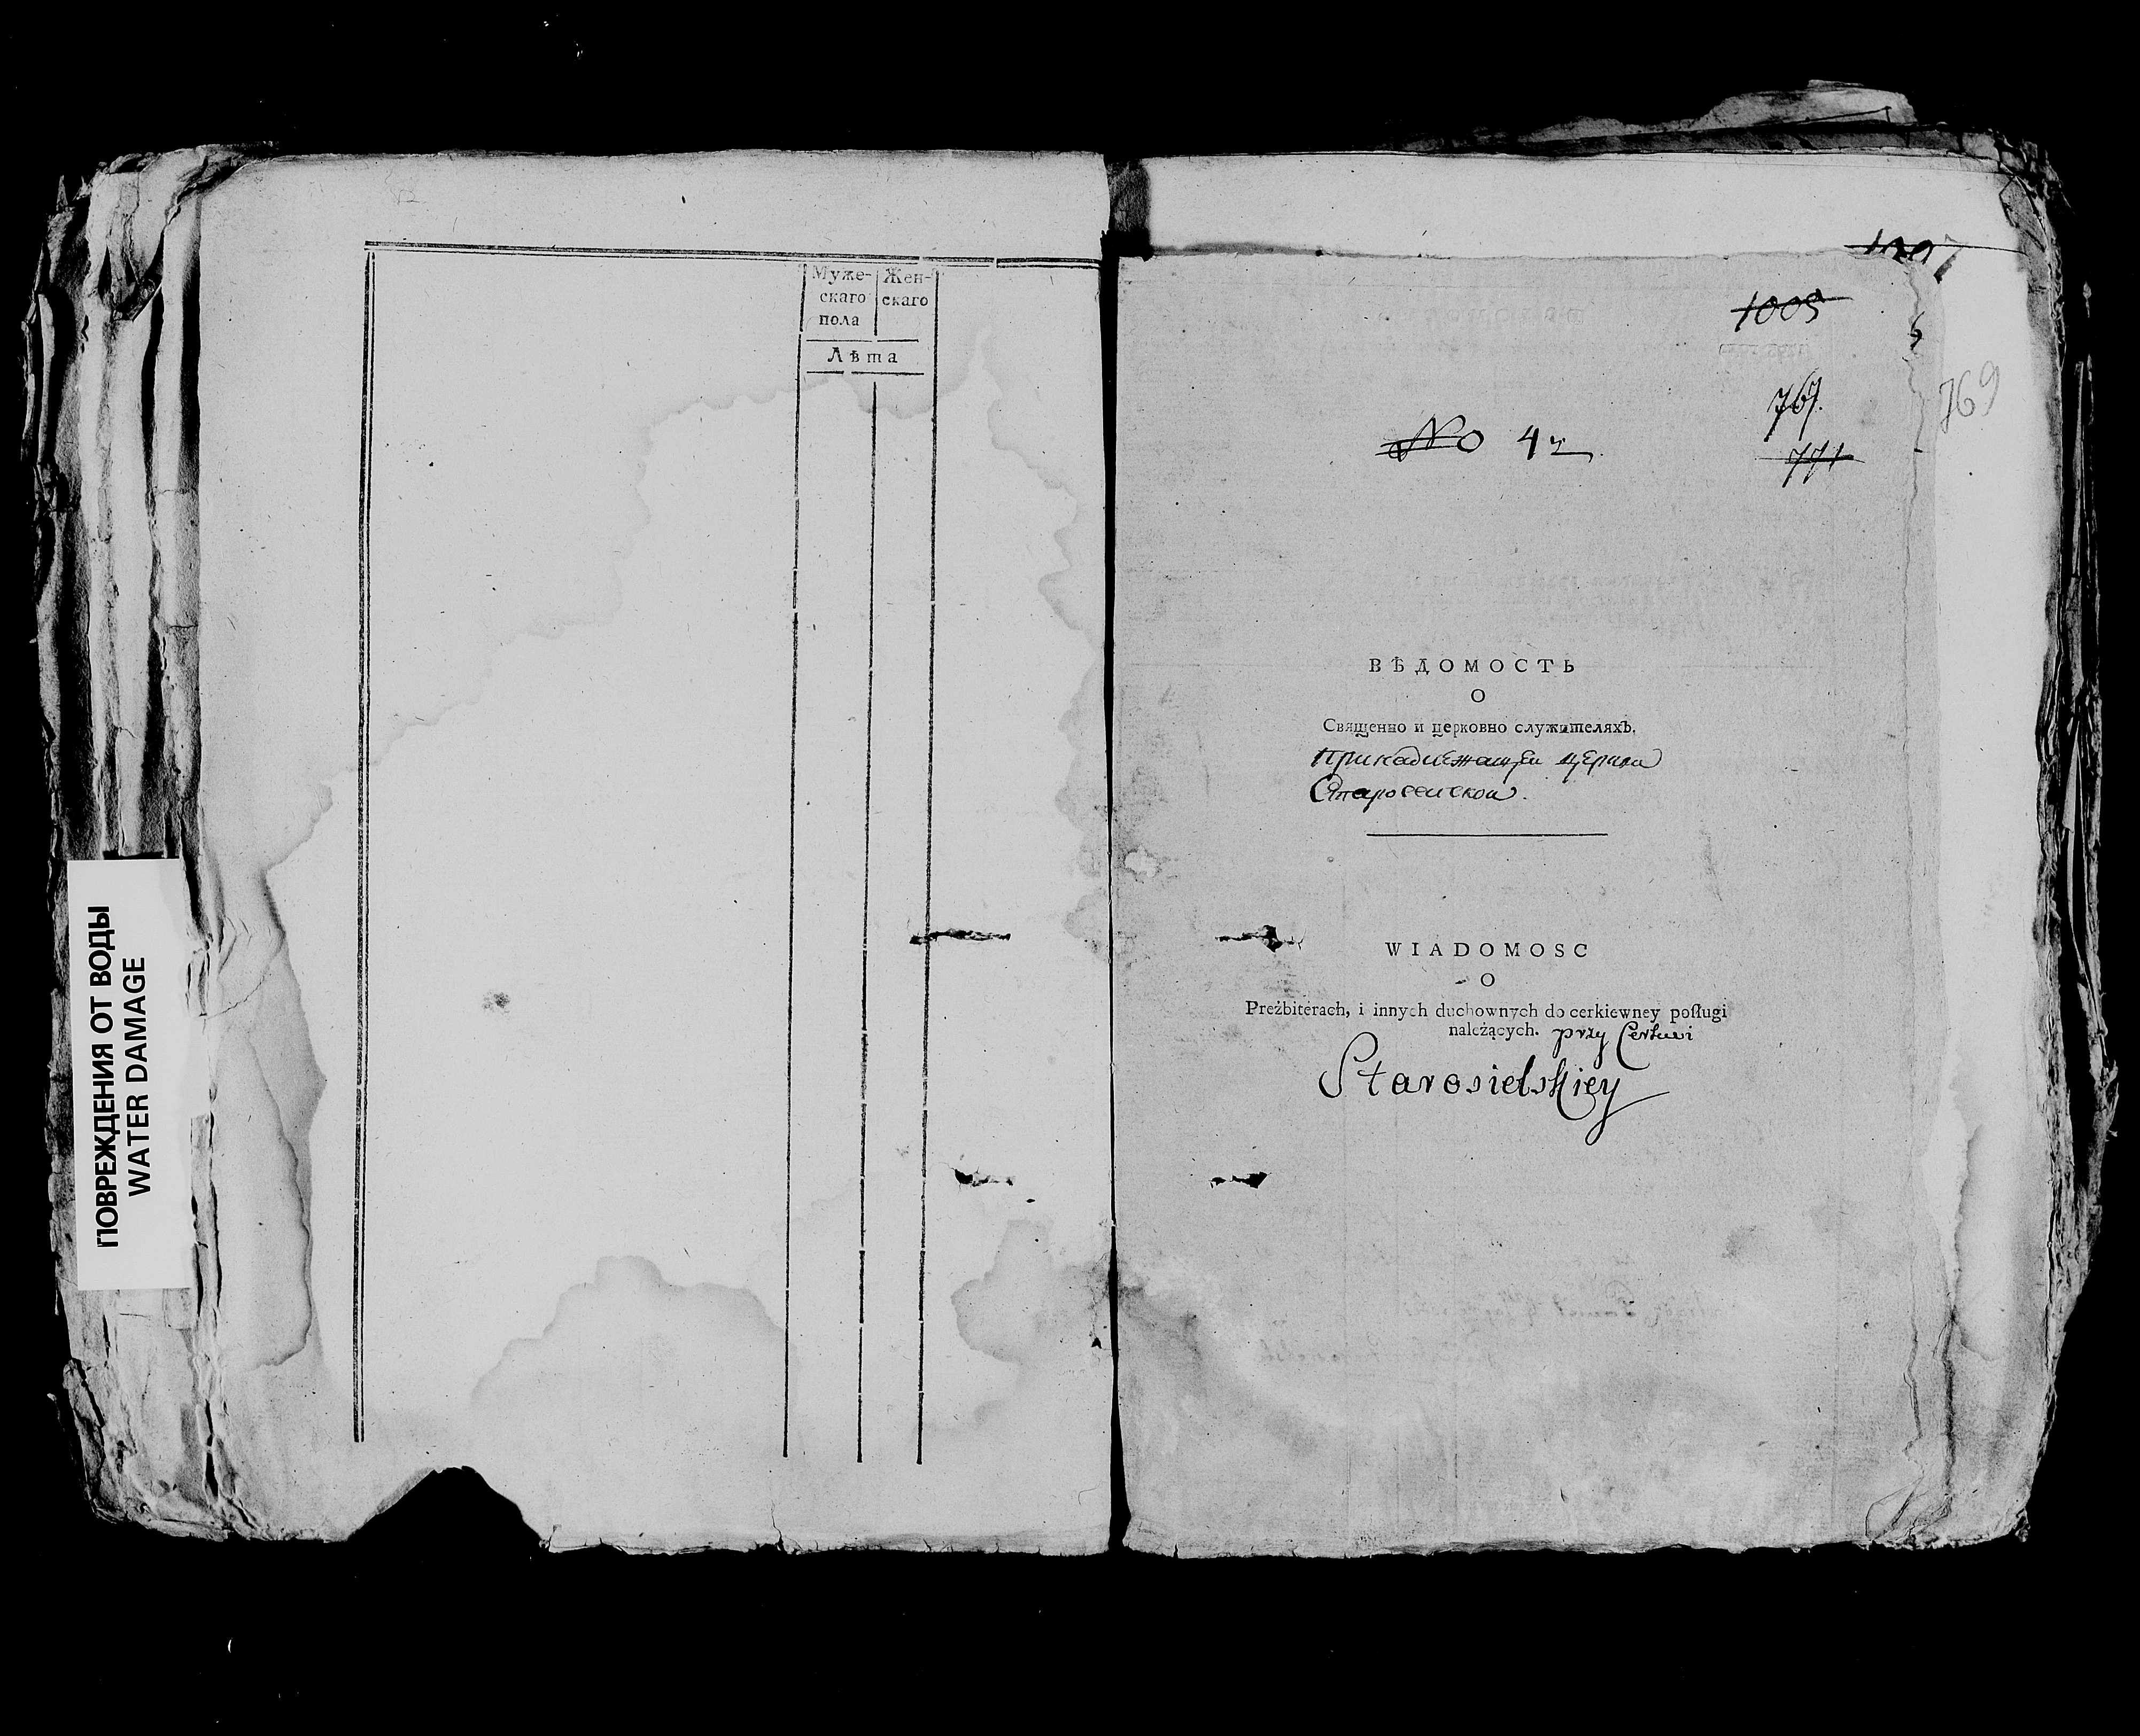 ПОВРЕЖДЕНИЯ ОТ ВОДЫ
WATER DAMAGE
Муже- Жен-
скаго скаго
пола
Лѣта
1005
767.
769
771
No 42
ВѢДОМОСТЬ
О
Священно и церковно служителяхъ,
принадлежащей церкви
Старосельской.
WIADOMOSC
O
Preżbiterach, i innych duchownych do cerkiewney poſługi
należących. przy Cerkwi
Starosielskiey